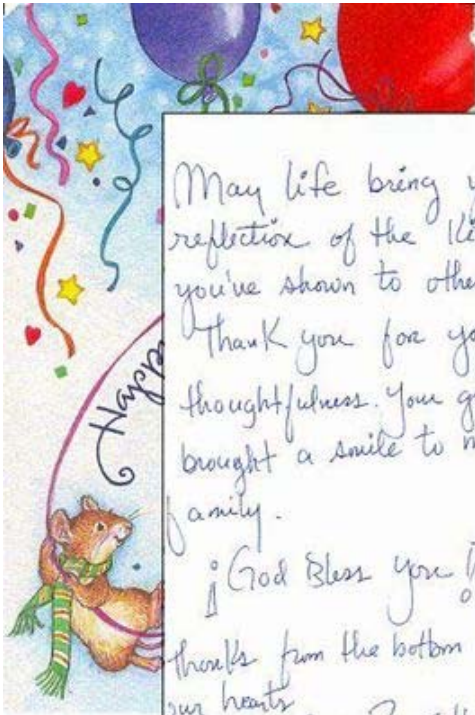 Happy
May life bring
reflection of the
you've shown to othe
Thank you for yo
thoughtfulness. Your g
brought a smile to m
family.
¡God Bless you!
thanks from the bottom
our hearts